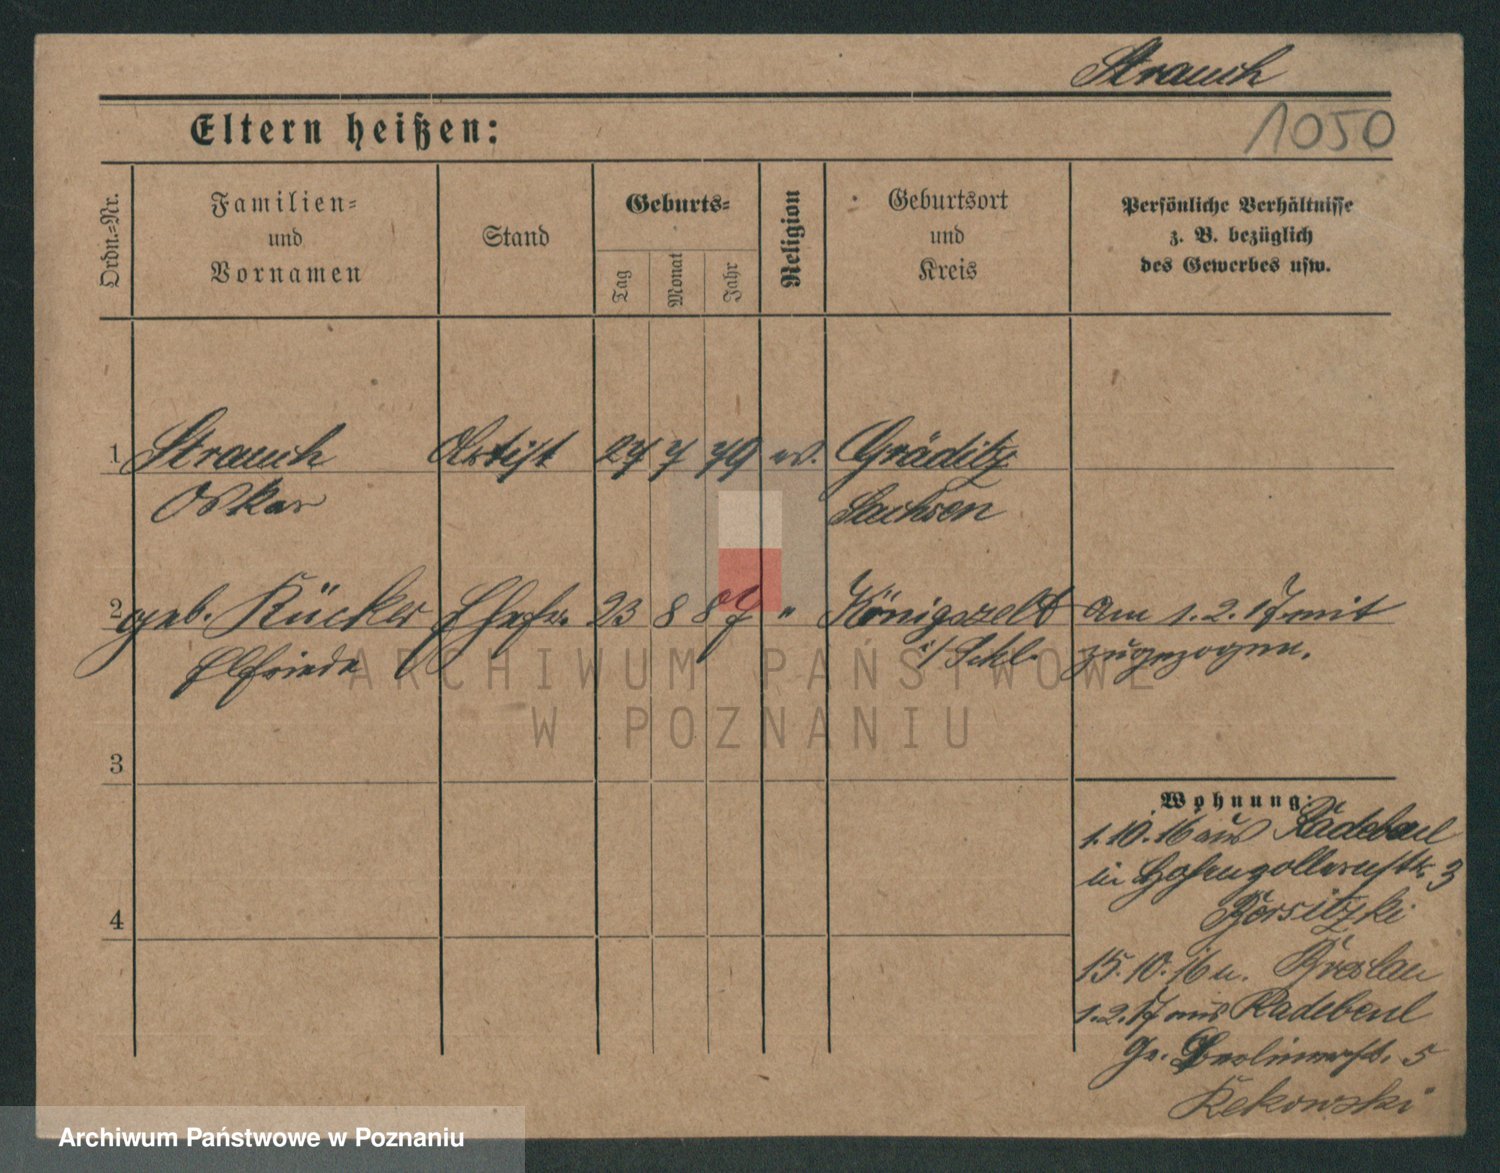 Strauch
1050
Eltern heißen:
Ordn.-Nr.
Familien- und Vornamen
Stand
Geburts-
Tag
Monat
Jahr
Religion
Geburtsort und Kreis
Persönliche Verhältnisse
z. B. bezüglich
des Gewerbes usw.
1 Strauch Artist 27 7 79 ev. Gräditz
Oskar Sachsen
2 geb. Kücker Ehefr. 23 8 87 " Königszelt am 1. 2. 17 mit
Elfriede i/ Schl. zugezogen.
3
4
Wohnung:
1. 10. 16 aus Radebeul
in Hohenzollernstr. 3
Borsitzki
15. 10. 16 n. Breslau
1. 2. 17 aus Radebeul
Gr. Berlinerstr. 5
Kekowski
ARCHIWUM PAŃSTWOWE
W POZNANIU
Archiwum Państwowe w Poznaniu